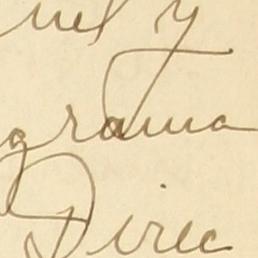 uel y
grama
Direc